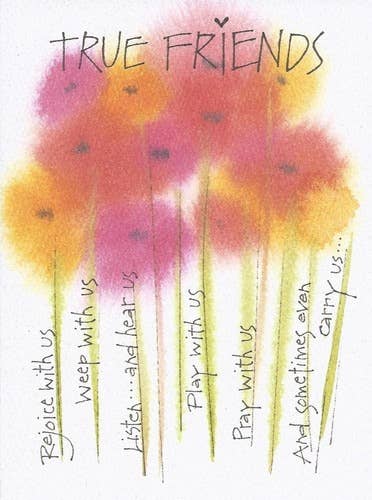 TRUE FRIENDS
Rejoice with us
Weep with us
Listen...and hear us
Play with us
Pray with us
And sometimes even
carry us...